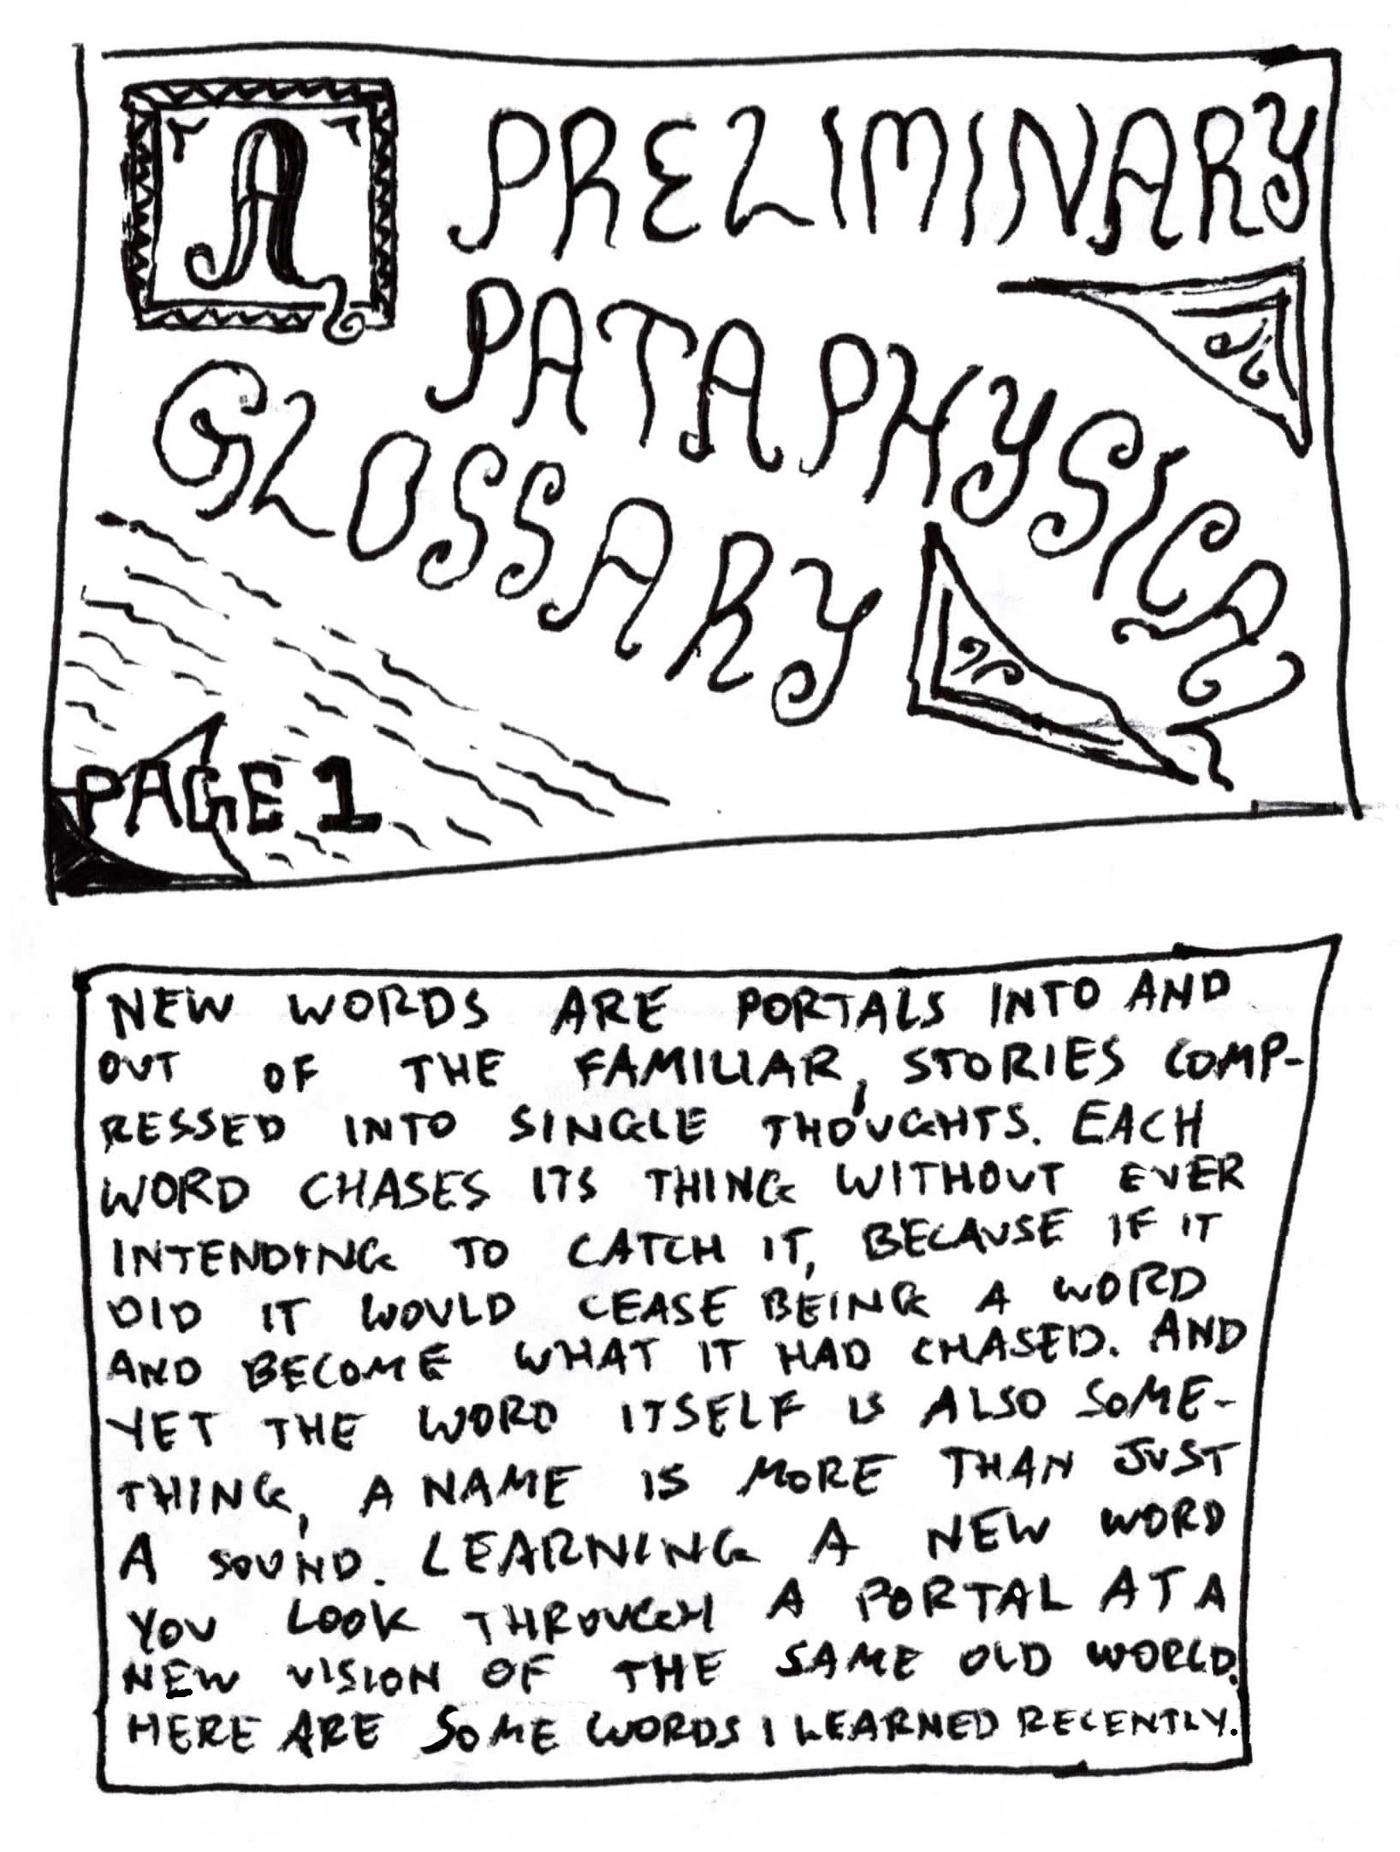 A PRELIMINARY
PATAPHYSICAL
GLOSSARY
PAGE 1
NEW WORDS ARE PORTALS INTO AND
OUT OF THE FAMILIAR, STORIES COMP-
RESSED INTO SINGLE THOUGHTS. EACH
WORD CHASES ITS THING WITHOUT EVER
INTENDING TO CATCH IT, BECAUSE IF IT
DID IT WOULD CEASE BEING A WORD
AND BECOME WHAT IT HAD CHASED. AND
YET THE WORD ITSELF IS ALSO SOME-
THING, A NAME IS MORE THAN JUST
A SOUND. LEARNING A NEW WORD
YOU LOOK THROUGH A PORTAL AT A
NEW VISION OF THE SAME OLD WORLD.
HERE ARE SOME WORDS I LEARNED RECENTLY.